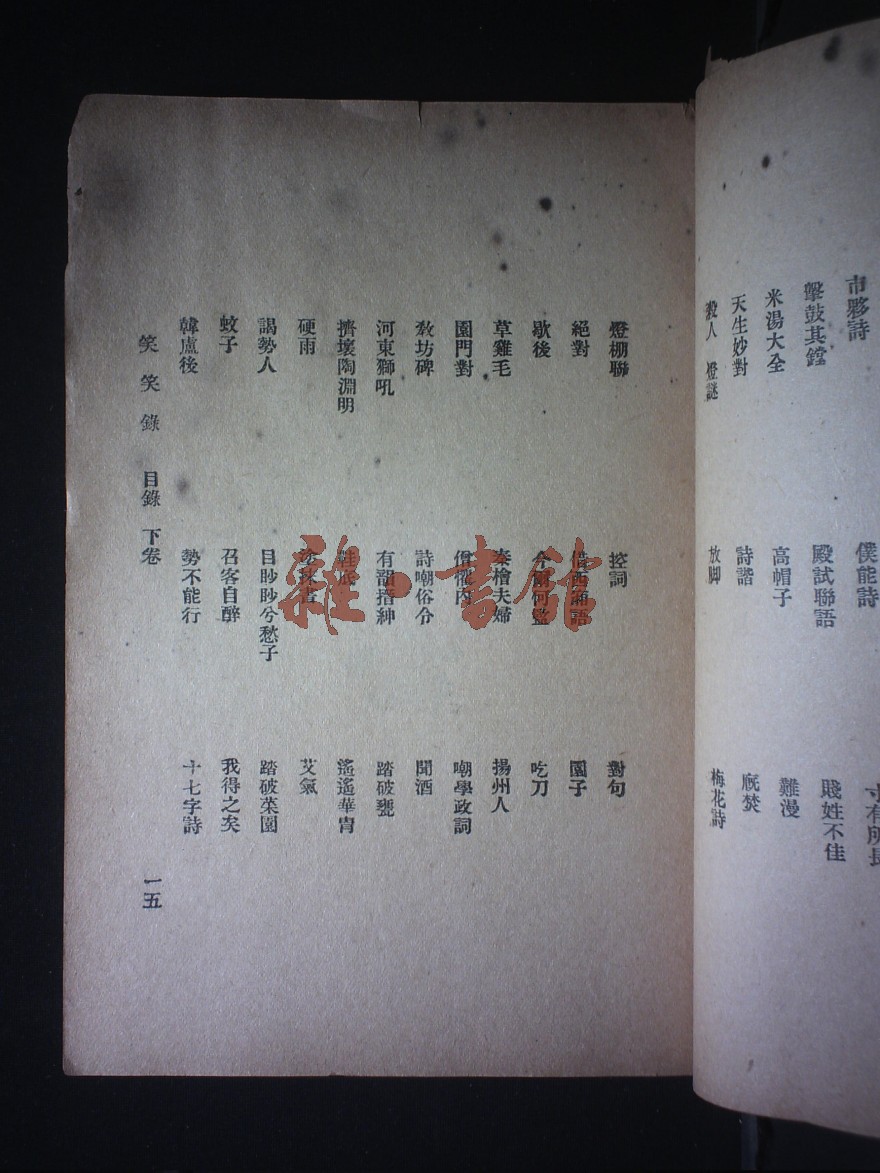 市夥詩 僕能詩 寸有所長
擊鼓其鏜 殿試聯語 賤姓不佳
米湯大全 高帽子 難漫
天生妙對 詩諧 廐焚
殺人 燈謎 放脚 梅花詩
燈棚聯 控詞 對句
絕對 借西廂語 園子
歇後 吃刀
草雞毛 秦檜夫婦 揚州人
園門對 嘲學政詞
教坊碑 詩嘲俗令 聞酒
河東獅吼 有韻搢紳 踏破甕
擠壞陶淵明 鞋底 遙遙華冑
硬雨 塗抹書 艾氣
謁勢人 目眇眇兮愁子 踏破菜園
蚊子 召客自醉 我得之矣
韓盧後 勢不能行 十七字詩
笑笑錄 目錄 下卷 一五
雜·書館